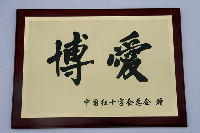 博愛
中国红十字会总会 赠